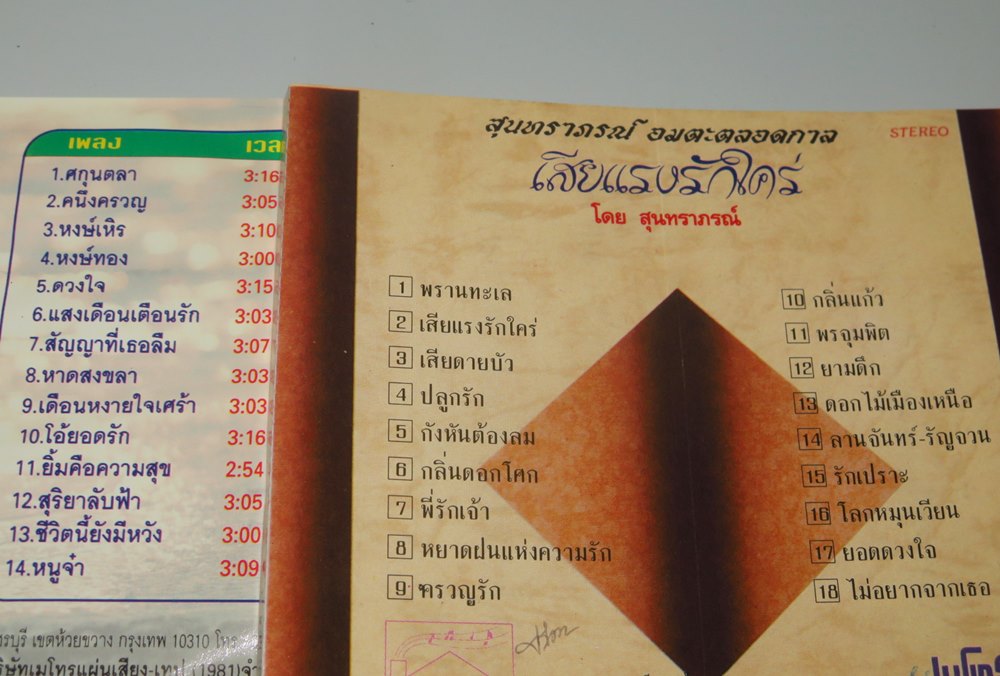 เพลง
1.ศกุนตลา 3:16
2.คนึงครวญ 3:05
3.หงษ์เหิร 3:10
4.หงษ์ทอง 3:00
5.ดวงใจ 3:15
6.แสงเดือนเตือนรัก 3:03
7.สัญญาที่เธอลืม 3:07
8.หาดสงขลา 3:03
9.เดือนหงายใจเศร้า 3:03
10.โอ้ยอดรัก 3:16
11.ยิ้มคือความสุข 2:54
12.สุริยาลับฟ้า 3:05
13.ชีวิตนี้ยังมีหวัง 3:00
14.หนูจ๋า 3:09
เขตห้วยขวาง กรุงเทพ 10310
(1981)
สุนทราภรณ์ อมตะตลอดกาล
STEREO
เสียแรงรักใคร่
โดย สุนทราภรณ์
1 พรานทะเล
2 เสียแรงรักใคร่
3 เสียดายบัว
4 ปลูกรัก
5 กังหันต้องลม
6 กลิ่นดอกโศก
7 พี่รักเจ้า
8 หยาดฝนแห่งความรัก
9 ครวญรัก
10 กลิ่นแก้ว
11 พรจุมพิต
12 ยามดึก
13 ดอกไม้เมืองเหนือ
14 ลานจันทร์-รัญจวน
15 รักเปราะ
16 โลกหมุนเวียน
17 ยอดดวงใจ
18 ไม่อยากจากเธอ